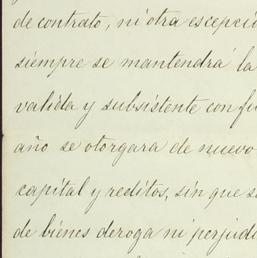 de contrato, ni otra escepció
siempre se mantendrá la
valida y subsistente con fu
año se otorgara de nuevo
capital y reditos, sin que s
de bienes deroga ni perjudi